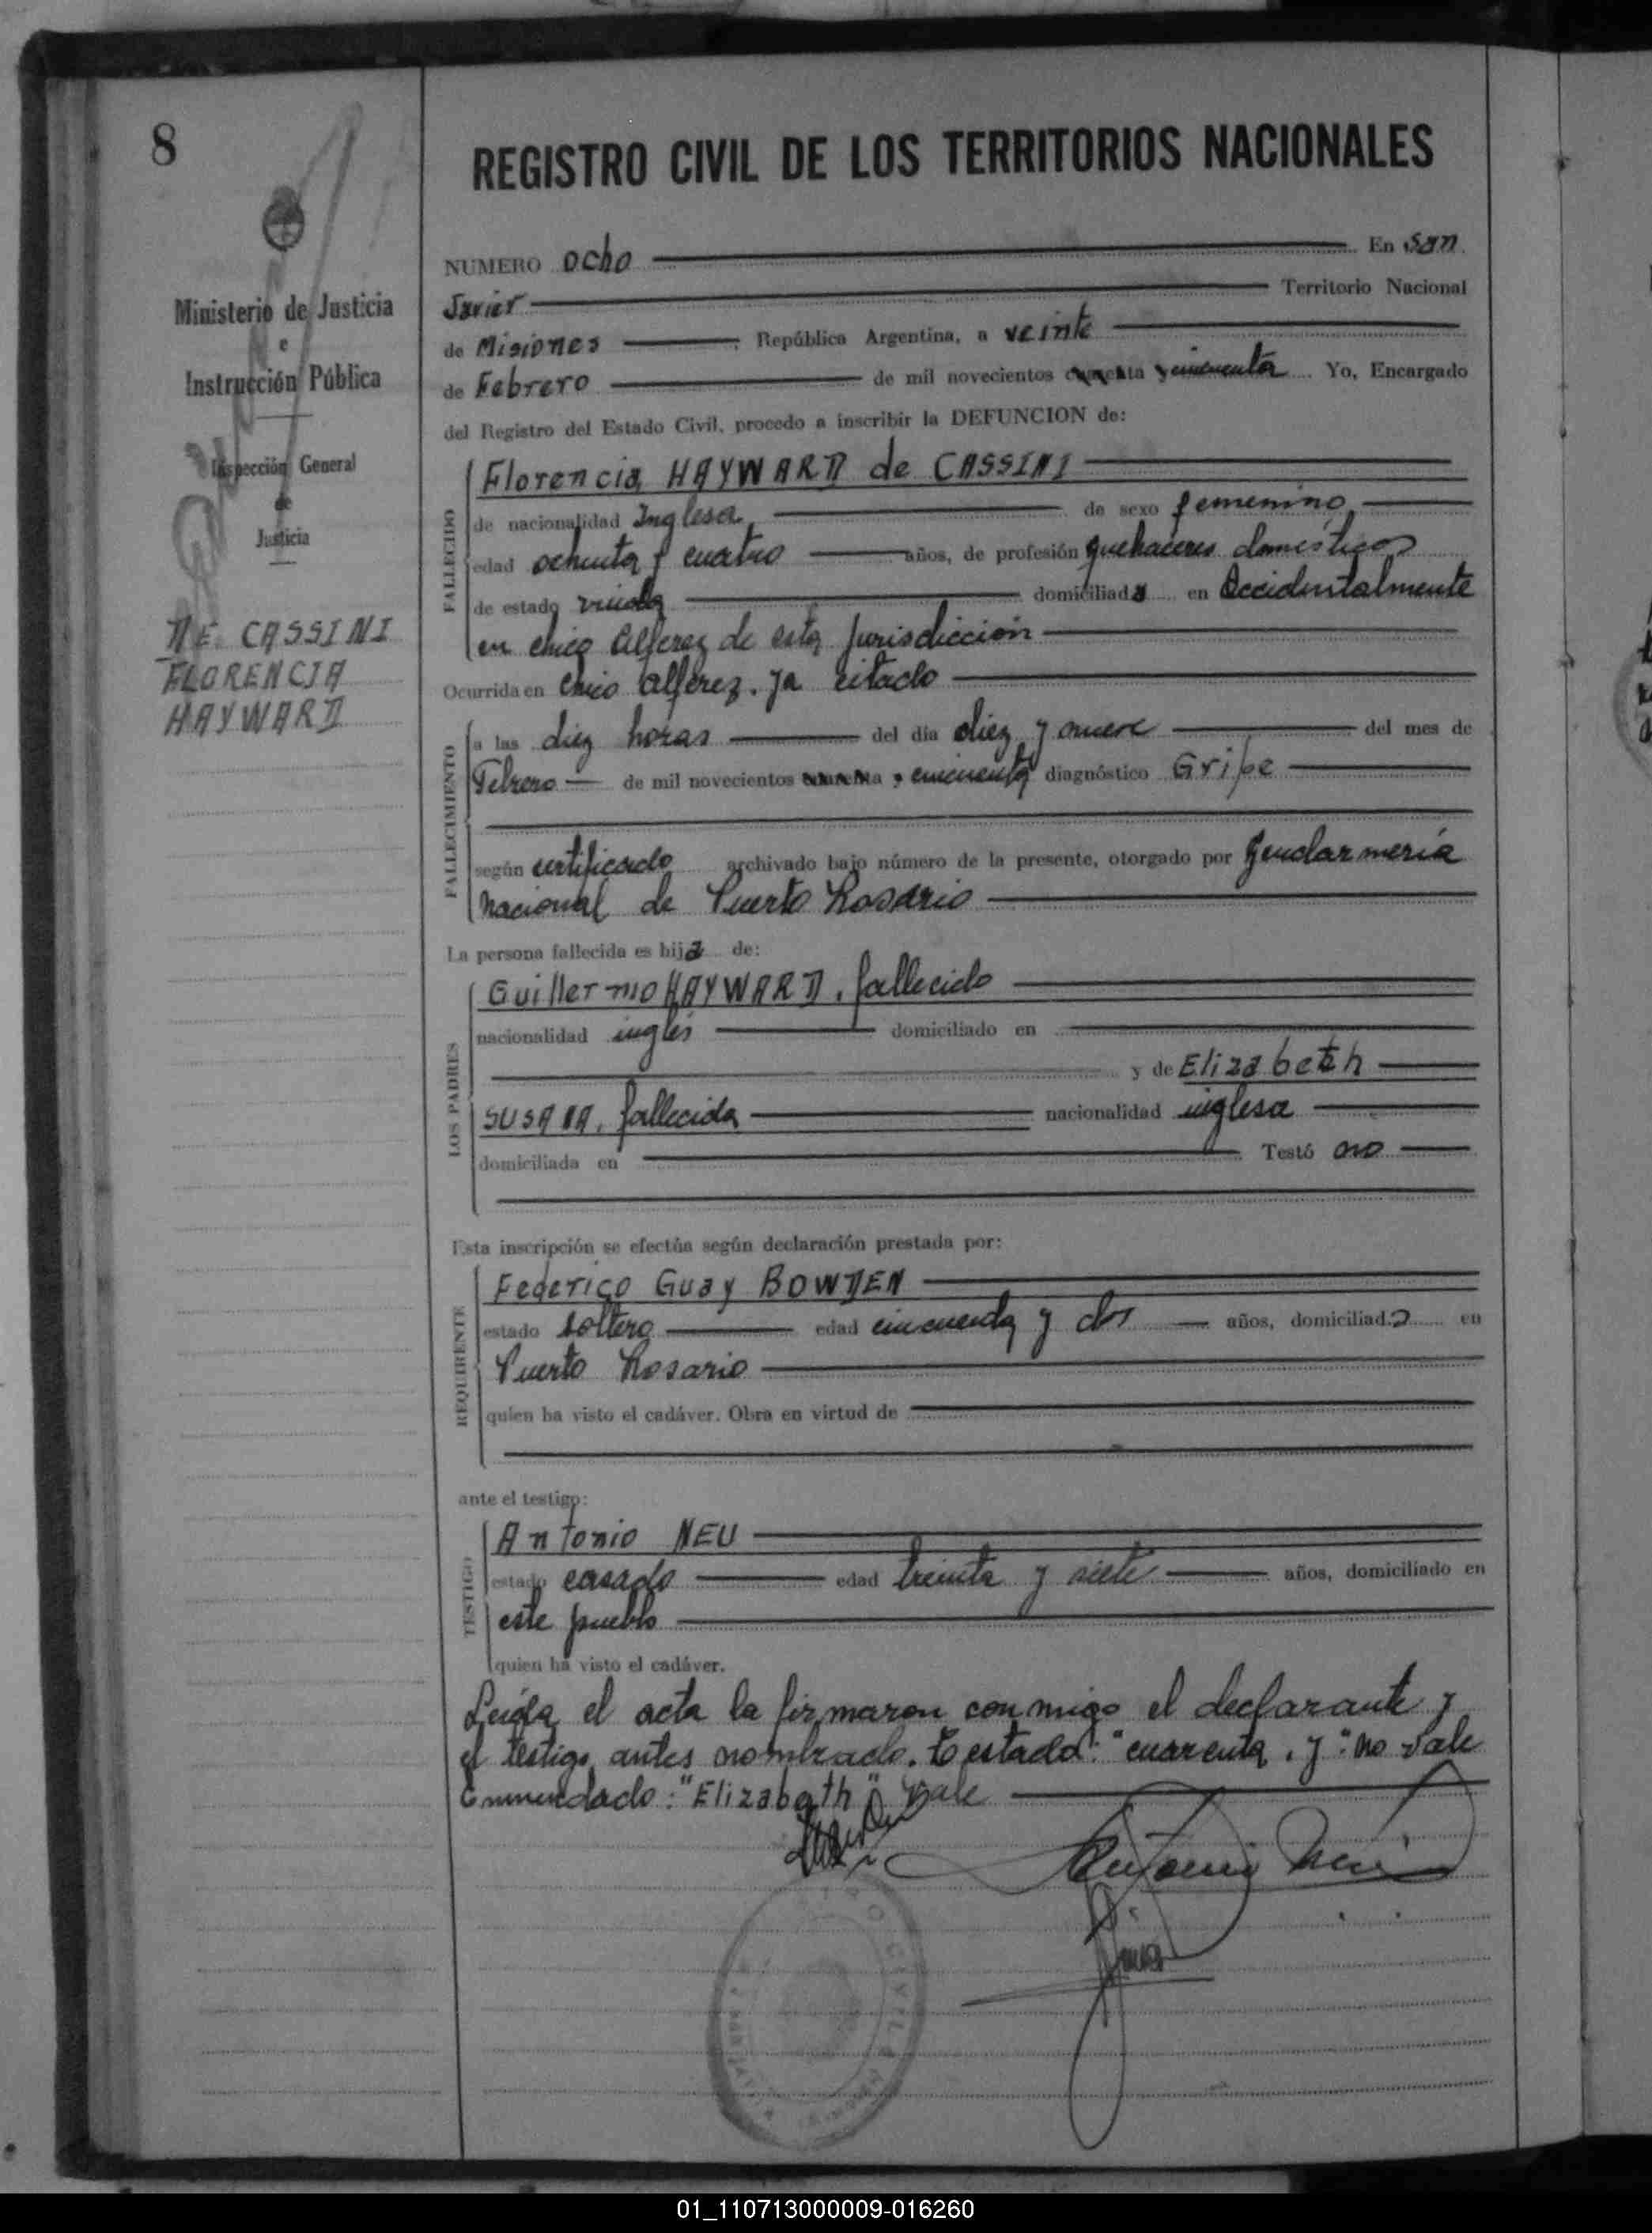 8
Ministerio de Justicia
e
Instrucción Pública
Inspección General
de
Justicia
DE CASSINI
FLORENCIA
HAYWARD
REGISTRO CIVIL DE LOS TERRITORIOS NACIONALES
NUMERO ocho En San
Javier Territorio Nacional
de Misiones República Argentina, a veinte
de Febrero de mil novecientos cuarenta y cincuenta Yo, Encargado
del Registro del Estado Civil, procedo a inscribir la DEFUNCION de:
FALLECIDO
Florencia HAYWARD de CASSINI
de nacionalidad Inglesa, de sexo femenino,
edad ochenta y cuatro años, de profesión quehaceres domésticos
de estado viuda domiciliada en Accidentalmente
en chico Alferez de esta Jurisdicción
Ocurrida en chico alférez. ya citado
FALLECIMIENTO
a las diez horas del día diez y nueve del mes de
Febrero de mil novecientos cuarenta y cincuenta diagnóstico Gripe
según certificado archivado bajo número de la presente, otorgado por Gendarmería
Nacional de Puerto Rosario
La persona fallecida es hija de:
LOS PADRES
Guillermo HAYWARD, fallecido
nacionalidad inglés domiciliado en
y de Elizabeth
SUSANA, fallecida nacionalidad inglesa
domiciliada en Testó no
Esta inscripción se efectúa según declaración prestada por:
REQUIRENTE
Federico Guay BOWDEN
estado soltero edad cincuenta y dos años, domiciliado en
Puerto Rosario
quien ha visto el cadáver. Obra en virtud de
ante el testigo:
TESTIGO
Antonio NEU
estado casado edad treinta y siete años, domiciliado en
este pueblo
quien ha visto el cadáver.
Leída el acta la firmaron conmigo el declarante y
el testigo antes nombrado. Testado: "cuarenta, y": no vale
Enmendado: "Elizabeth" Vale
Antonio Neu
01_110713000009-016260